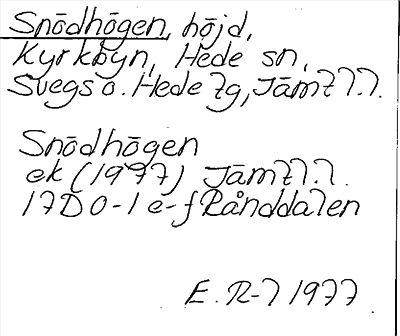 Snōdhōgen, hōjd,
Kyrkbyn, Hede sn,
Svegs o. Hede tg, Jāmtl.l.
Snōdhōgen
ek (1977) Jāmtl.l.
17D 0-1 e-f Rånddalen
E. R-l 1977